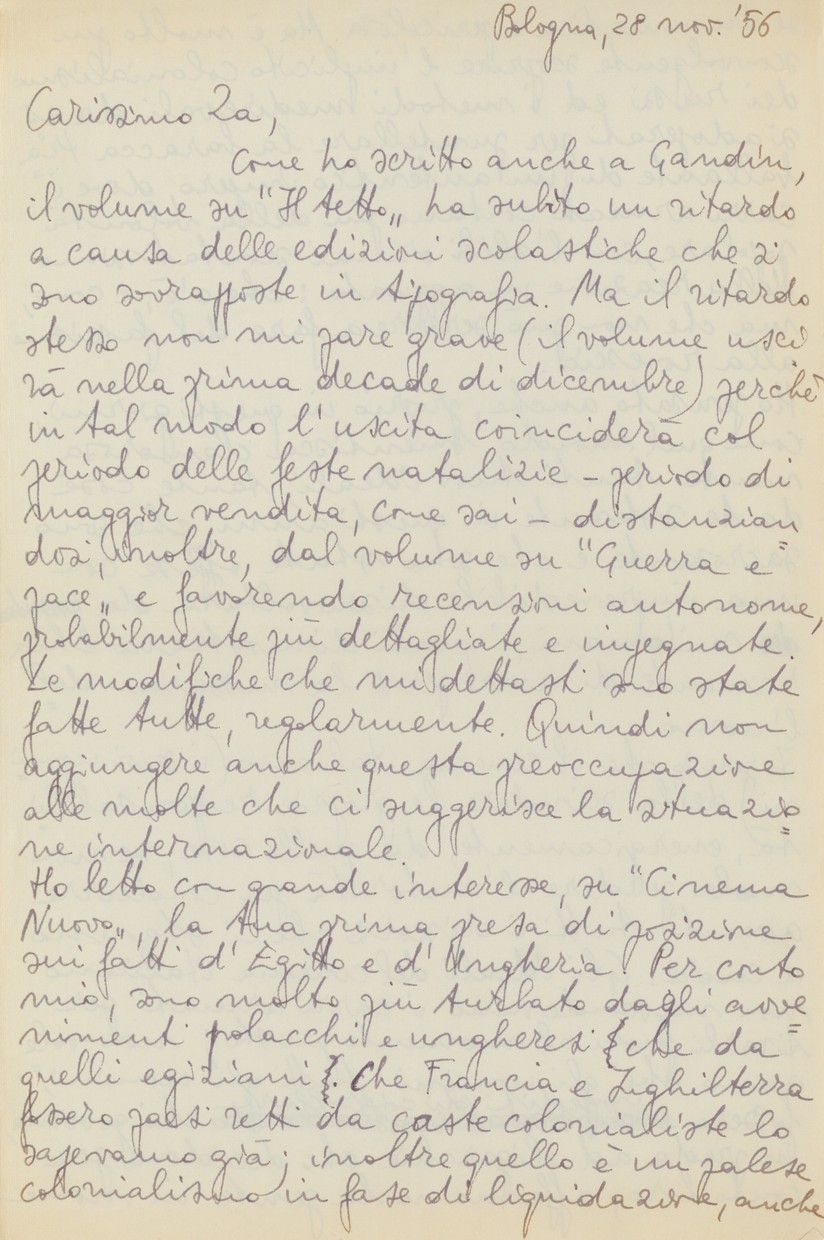 Bologna, 28 nov. '56
Carissimo Za,
Come ho scritto anche a Gandin,
il volume su "Il tetto„ ha subìto un ritardo
a causa delle edizioni scolastiche che si
sono sovrapposte in tipografia. Ma il ritardo
stesso non mi pare grave (il volume usci
rà nella prima decade di dicembre) perchè
in tal modo l'uscita coinciderà col
periodo delle feste natalizie – periodo di
maggior vendita, come sai – distanzian
dosi, inoltre, dal volume su "Guerra e =
pace„ e favorendo recensioni autonome,
probabilmente più dettagliate e impegnate.
Le modifiche che mi dettasti sono state
fatte tutte, regolarmente. Quindi non
aggiungere anche questa preoccupazione
alle molte che ci suggerisce la situazio=
ne internazionale.
Ho letto con grande interesse, su "Cinema
Nuovo„, la tua prima presa di posizione
sui fatti d'Egitto e d'Ungheria. Per conto
mio, sono molto più turbato dagli avve=
nimenti polacchi e ungheresi che da
quelli egiziani. Che Francia e Inghilterra
fossero paesi retti da caste colonialiste lo
sapevamo già; inoltre quello è un palese
colonialismo in fase di liquidazione, anche